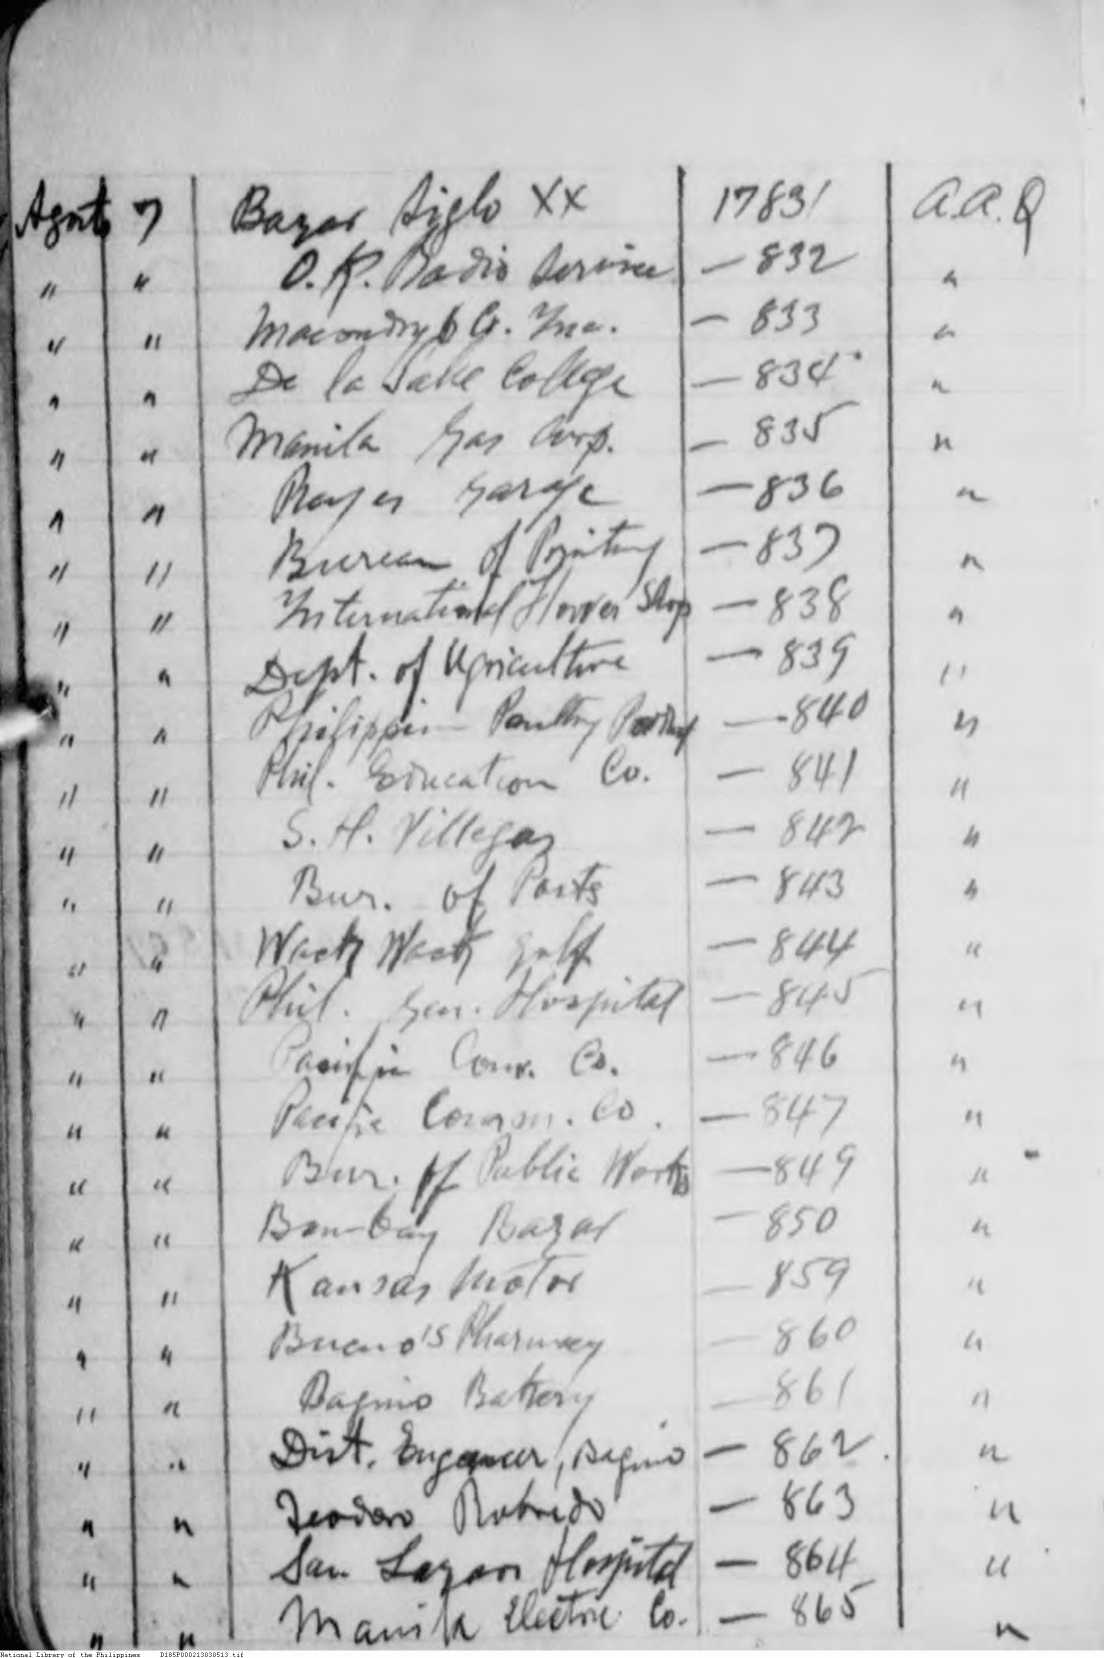 Agosto 7 Bazar Siglo XX 17831 A.A.Q
" " O.K. Radio Service — 832 "
" " Macondray & Co. Inc. — 833 "
" " De la Salle College — 834 "
" " Manila Gas Corp. — 835 "
" " Reyes Garage — 836 "
" " Bureau of Printing — 837 "
" " International Flower Shop — 838 "
" " Dept. of Agriculture — 839 "
" " Philippine Poultry — 840 "
" " Phil. Education Co. — 841 "
" " S. H. Villegas — 842 "
" " Bur. of Posts — 843 "
" " Wack Wack Golf — 844 "
" " Phil. Gen. Hospital — 845 "
" " Pacific Com. Co. — 846 "
" " Pacific Comm. Co. — 847 "
" " Bur. of Public Works — 849 "
" " Bombay Bazar — 850 "
" " Kansas Motor — 859 "
" " Bueno's Pharmacy — 860 "
" " Baguio Battery — 861 "
" " Dist. Engineer, Baguio — 862 "
" " Teodoro Robredo — 863 "
" " San Lazaro Hospital — 864 "
" " Manila Electric Co. — 865 "
National Library of the Philippines D185P000213030513.tif